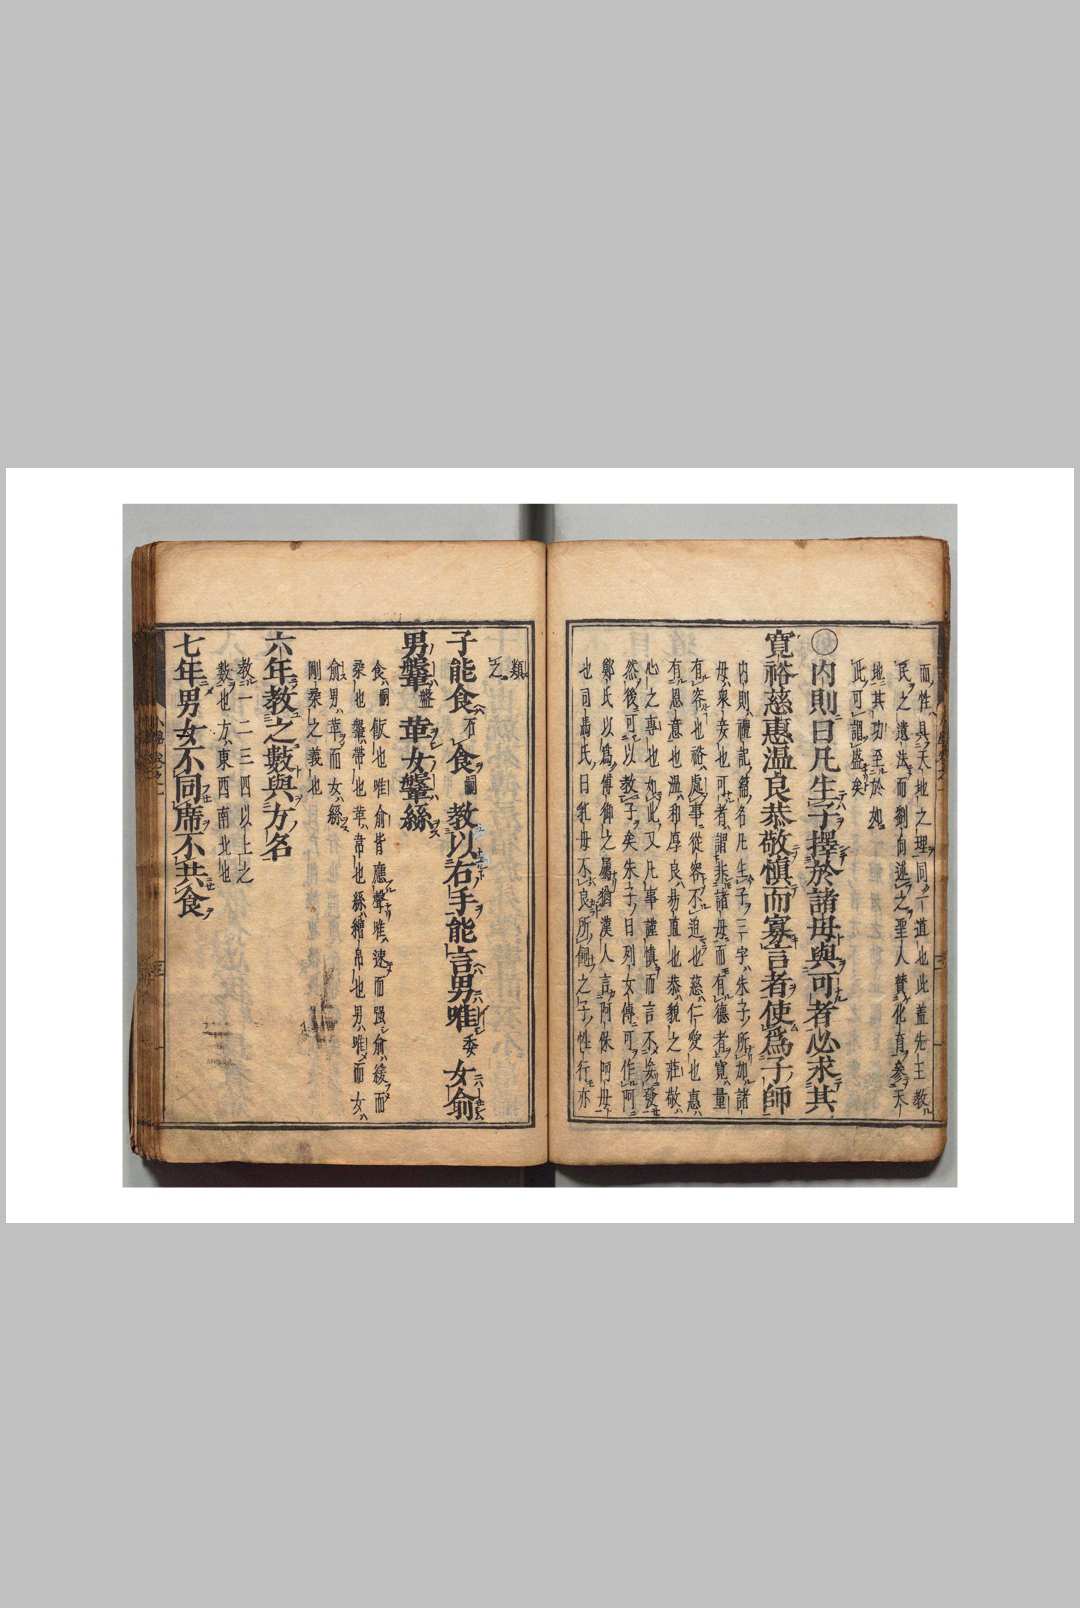 而性具天地之理同一道也此蓋先王教
民之遺法而劉向述之聖人賛化育參天
地其功至於如
此可謂盛矣
内則曰凡生子擇於諸母與可者必求其
寛裕慈惠温良恭敬慎而寡言者使爲子師
内則禮記篇名凡生子三字朱子所加諸
母衆妾也可者謂非諸母而有德者寛量
有容也裕處事從容不迫也慈仁愛也惠
有恩意也温和厚良易直也恭貌之莊敬
心之專也如此又凡事謹慎而言不妄發
然後可以教子矣朱子曰列女傳可作阿
鄭氏以爲傅御之屬猶漢人言阿保阿母
也司馬氏曰乳母不良所飼之子性行亦
類
之
子能食食嗣教以右手能言男唯委女俞
男鞶盤革女鞶絲
食嗣飯也唯俞皆應聲唯速而强俞緩而
柔也鞶帶也革韋也絲繒帛也男唯而女
俞男革而女絲
剛柔之義也
六年教之數與方名
數一二三四以上之
數也方東西南北也
七年男女不同席不共食